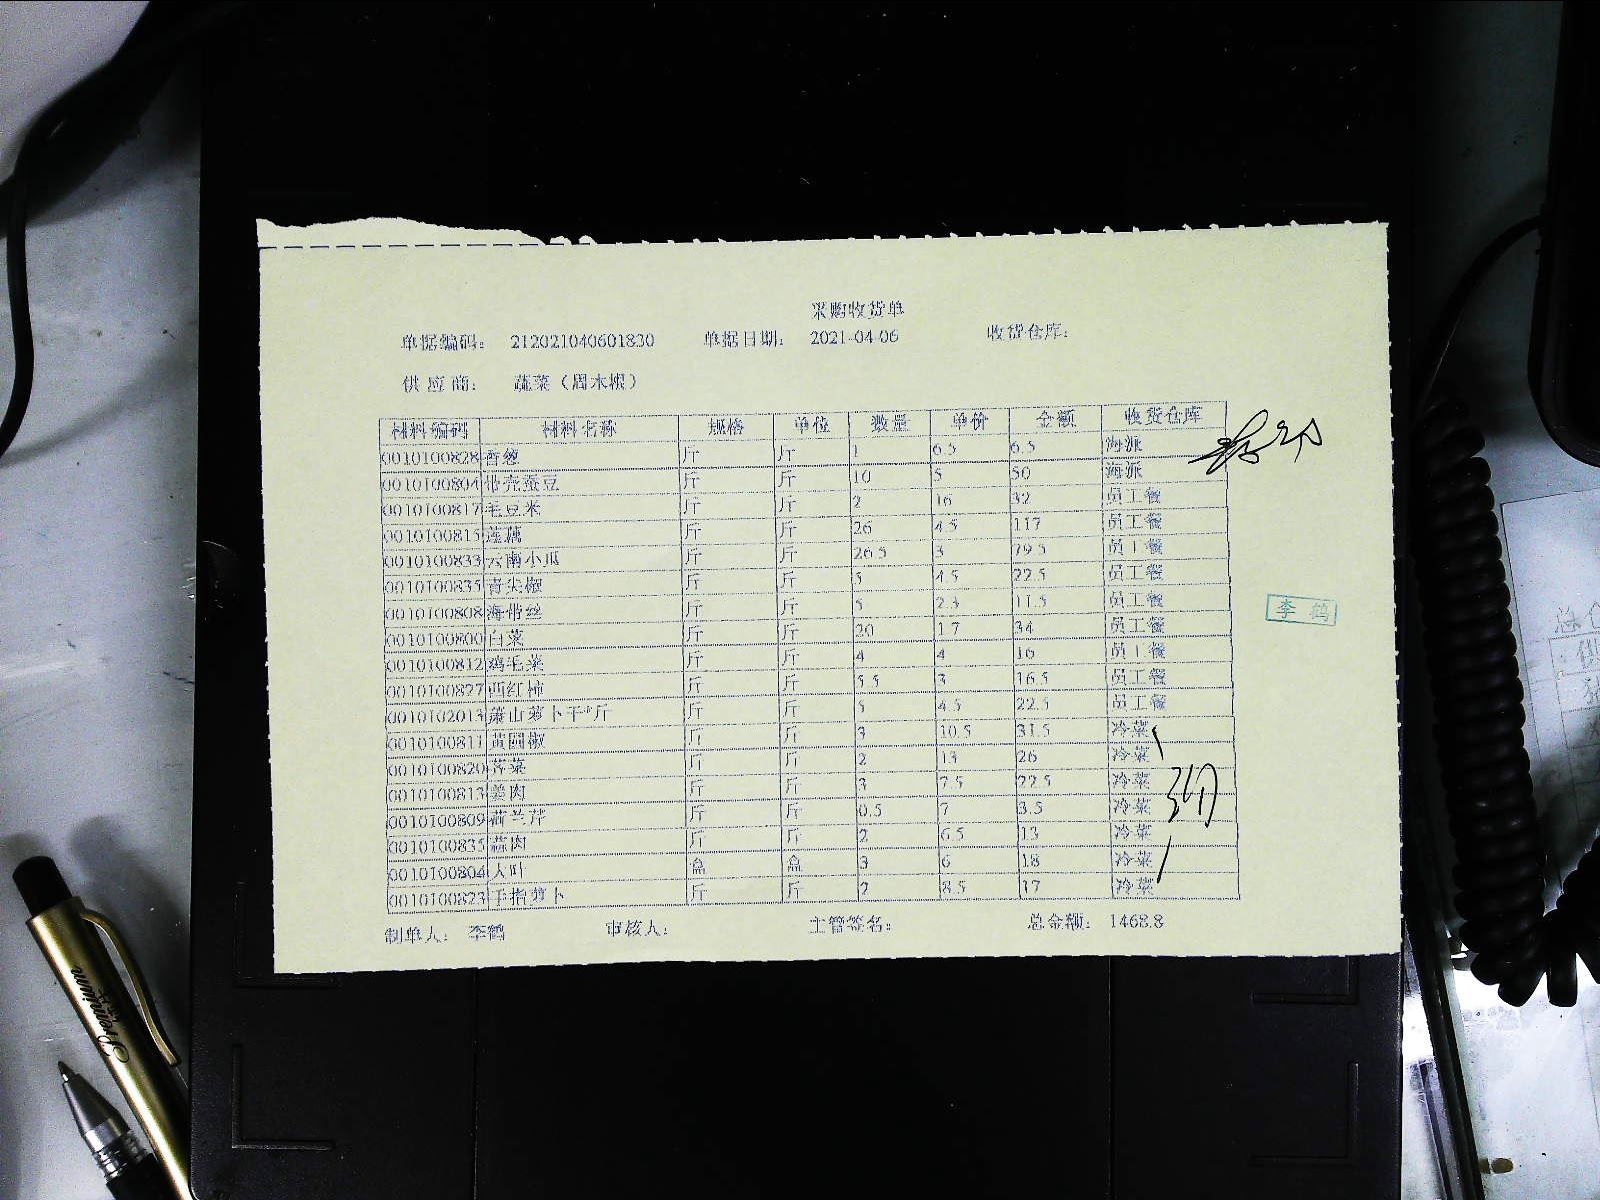 采购收货单
单据编码： 212021040601830 单据日期： 2021-04-06 收货仓库：
供应商： 蔬菜（周木根）
材料编码 材料名称 规格 单位 数量 单价 金额 收货仓库
0010100828 香葱 斤 斤 1 6.5 6.5 海派
0010100804 带壳蚕豆 斤 斤 10 5 50 海派
0010100817 毛豆米 斤 斤 2 16 32 员工餐
0010100815 莲藕 斤 斤 26 4.5 117 员工餐
0010100833 云南小瓜 斤 斤 26.5 3 79.5 员工餐
0010100835 青尖椒 斤 斤 5 4.5 22.5 员工餐
0010100808 海带丝 斤 斤 5 2.3 11.5 员工餐
0010100800 白菜 斤 斤 20 1.7 34 员工餐
0010100812 鸡毛菜 斤 斤 4 4 16 员工餐
0010100827 西红柿 斤 斤 5.5 3 16.5 员工餐
0010102013 萧山萝卜干*斤 斤 斤 5 4.5 22.5 员工餐
0010100811 黄圆椒 斤 斤 3 10.5 31.5 冷菜
0010100820 荠菜 斤 斤 2 13 26 冷菜
0010100813 姜肉 斤 斤 3 7.5 22.5 冷菜
0010100809 荷兰芹 斤 斤 0.5 7 3.5 冷菜
0010100835 蒜肉 斤 斤 2 6.5 13 冷菜
0010100804 大叶 盒 盒 3 6 18 冷菜
0010100823 手指萝卜 斤 斤 2 8.5 17 冷菜
制单人： 李鹤 审核人： 主管签名： 总金额： 1468.8
李鹤
Premium